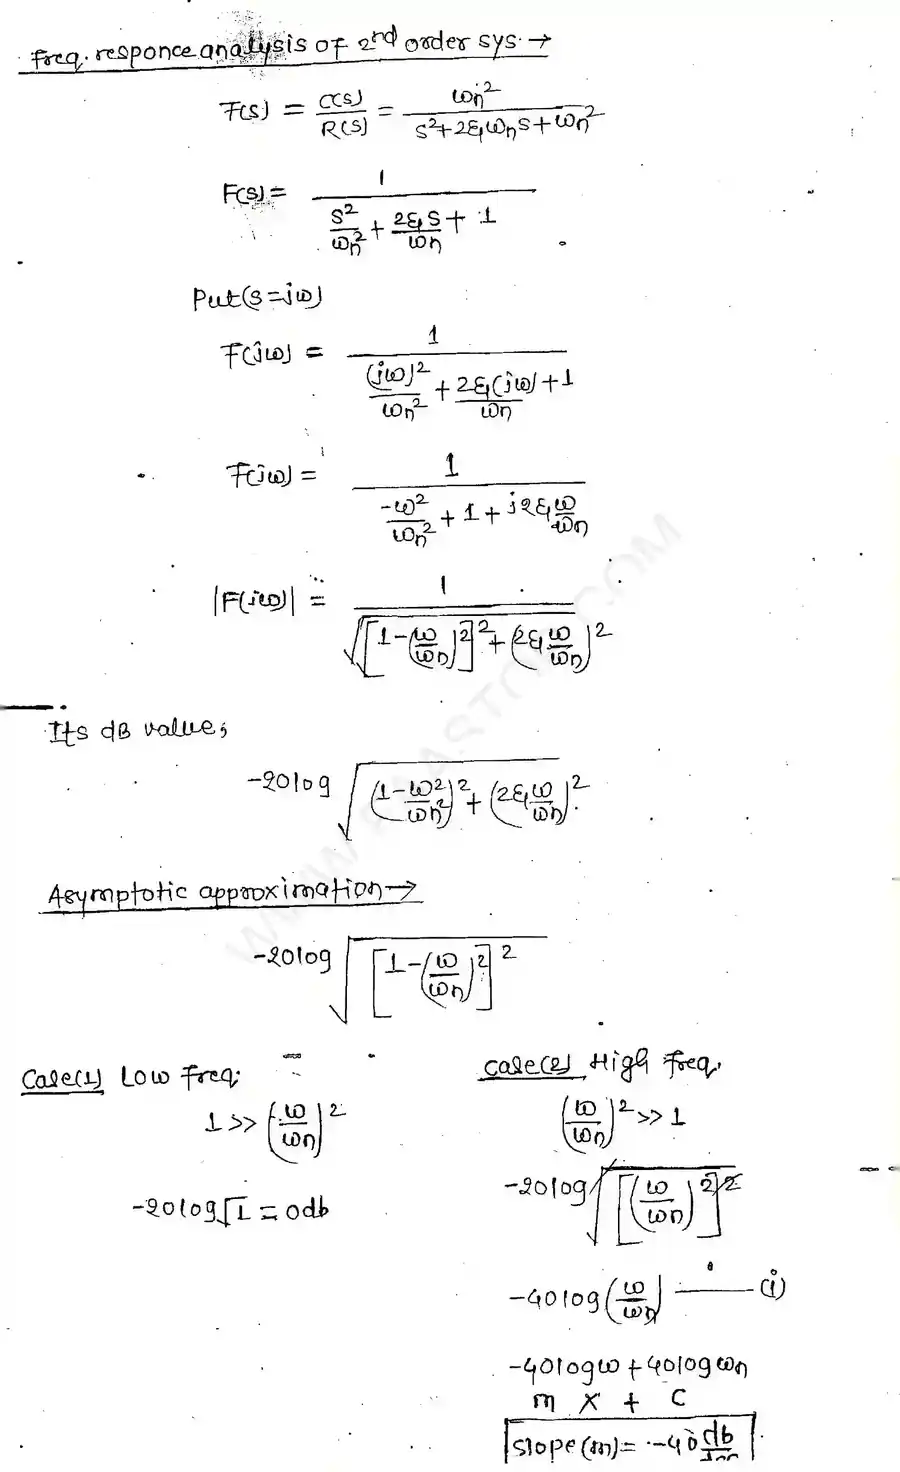 Freq. responce analysis of 2nd order sys. →
F(s) = C(s)/R(s) = ωn²/(s²+2ξωns+ωn²)
F(s) = 1/(s²/ωn² + 2ξs/ωn + 1)
Put(s=jω)
F(jω) = 1/((jω)²/ωn² + 2ξ(jω)/ωn + 1)
F(jω) = 1/(-ω²/ωn² + 1 + j2ξω/ωn)
|F(jω)| = 1/√([1-(ω/ωn)²]² + (2ξω/ωn)²)
Its dB value;
-20log √((1-ω²/ωn²)² + (2ξω/ωn)²)
Asymptotic approximation →
-20log √([1-(ω/ωn)²]²)
Case(1) Low freq.
1 >> (ω/ωn)²
-20log√1 = 0db
case(2) High freq.
(ω/ωn)² >> 1
-20log √([(ω/ωn)²]²)
-40log(ω/ωn) — (i)
-40logω + 40logωn
m x + c
slope(m) = -40 db